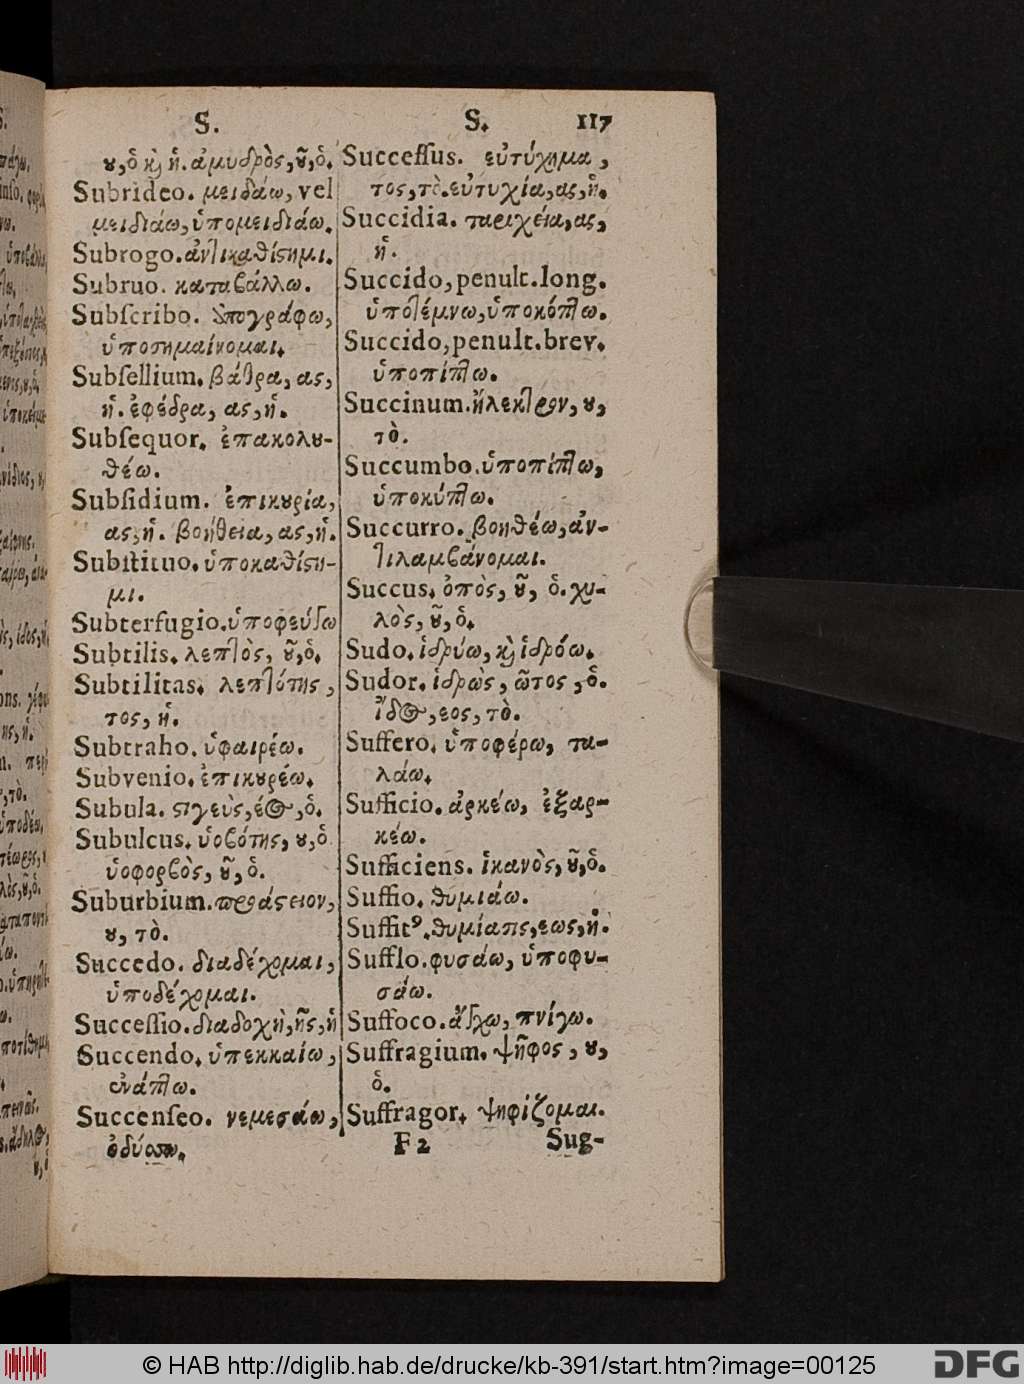 S.
ȣ, ὁ κ̀ ἡ. ἀμυδρὸς, ȣ͂, ὁ.
Subrideo. μειδάω, vel
μειδιάω, ὑπομειδιάω.
Subrogo. ἀντικαθίστημι.
Subruo. καταβάλλω.
Subſcribo. ὑπογράφω,
ὑποσημαίνομαι.
Subſellium. βάθρα, ας,
ἡ. ἐφέδρα, ας, ἡ.
Subſequor. ἐπακολȣ-
θέω.
Subſidium. ἐπικȣρία,
ας, ἡ. βοήθεια, ας, ἡ.
Subſtituo. ὑποκαθίστη-
μι.
Subterfugio. ὑποφεύγω
Subtilis. λεπτὸς, ȣ͂, ὁ.
Subtilitas. λεπτότης,
τος, ἡ.
Subtraho. ὑφαιρέω.
Subvenio. ἐπικȣρέω.
Subula. στιγεὺς, έος, ὁ.
Subulcus. ὑοβότης, ȣ, ὁ
ὑοφορβὸς, ȣ͂, ὁ.
Suburbium. προάστειον,
ȣ, τὸ.
Succedo. διαδέχομαι,
ὑποδέχομαι.
Succeſſio. διαδοχὴ, ῆς, ἡ
Succendo. ὑπεκκαίω,
ἐνάπτω.
Succenſeo. νεμεσάω,
ὀδύσσω.
S. 117
Succeſſus. εὐτύχημα,
τος, τὸ. εὐτυχία, ας, ἡ.
Succidia. ταριχέια, ας,
ἡ.
Succido, penult. long.
ὑποτέμνω, ὑποκόπτω.
Succido, penult. brev.
ὑποπίπτω.
Succinum. ἤλεκτρον, ȣ,
τὸ.
Succumbo. ὑποπίπτω,
ὑποκύπτω.
Succurro. βοηθέω, ἀν-
τιλαμβάνομαι.
Succus. ὀπὸς, ȣ͂, ὁ. χυ-
λὸς, ȣ͂, ὁ.
Sudo. ἱδρύω, κ̀ ἱδρόω.
Sudor. ἱδρὼς, ῶτος, ὁ.
ἶδος, εος, τὸ.
Suffero. ὑποφέρω, τα-
λάω.
Sufficio. ἀρκέω, ἐξαρ-
κέω.
Sufficiens. ἱκανὸς, ȣ͂, ὁ.
Suffio. θυμιάω.
Suffitꝰ. θυμίασις, εως, ἡ.
Sufflo. φυσάω, ὑποφυ-
σάω.
Suffoco. ἄγχω, πνίγω.
Suffragium. ψῆφος, ȣ,
ὁ.
Suffragor. ψηφίζομαι.
F 2 Sug-
© HAB http://diglib.hab.de/drucke/kb-391/start.htm?image=00125
DFG